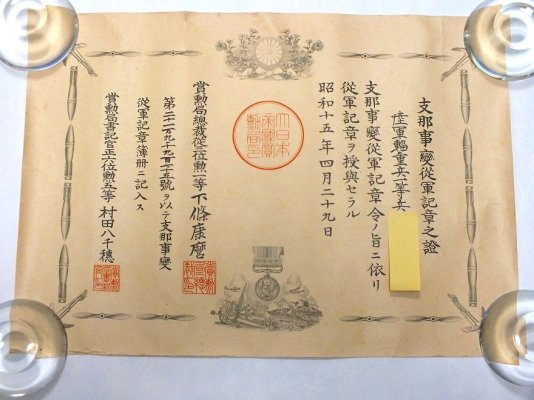 支那事變從軍記章之證
陸軍輜重兵一等兵
支那事變從軍記章令ノ旨ニ依リ
從軍記章ヲ授與セラル
昭和十五年四月二十九日
大日本
帝國賞
勲局印
賞勲局總裁從三位勲一等下條康麿
號ヲ以テ支那事變
從軍記章簿冊ニ記入ス
賞勲局書記官正六位勲五等村田八千穂